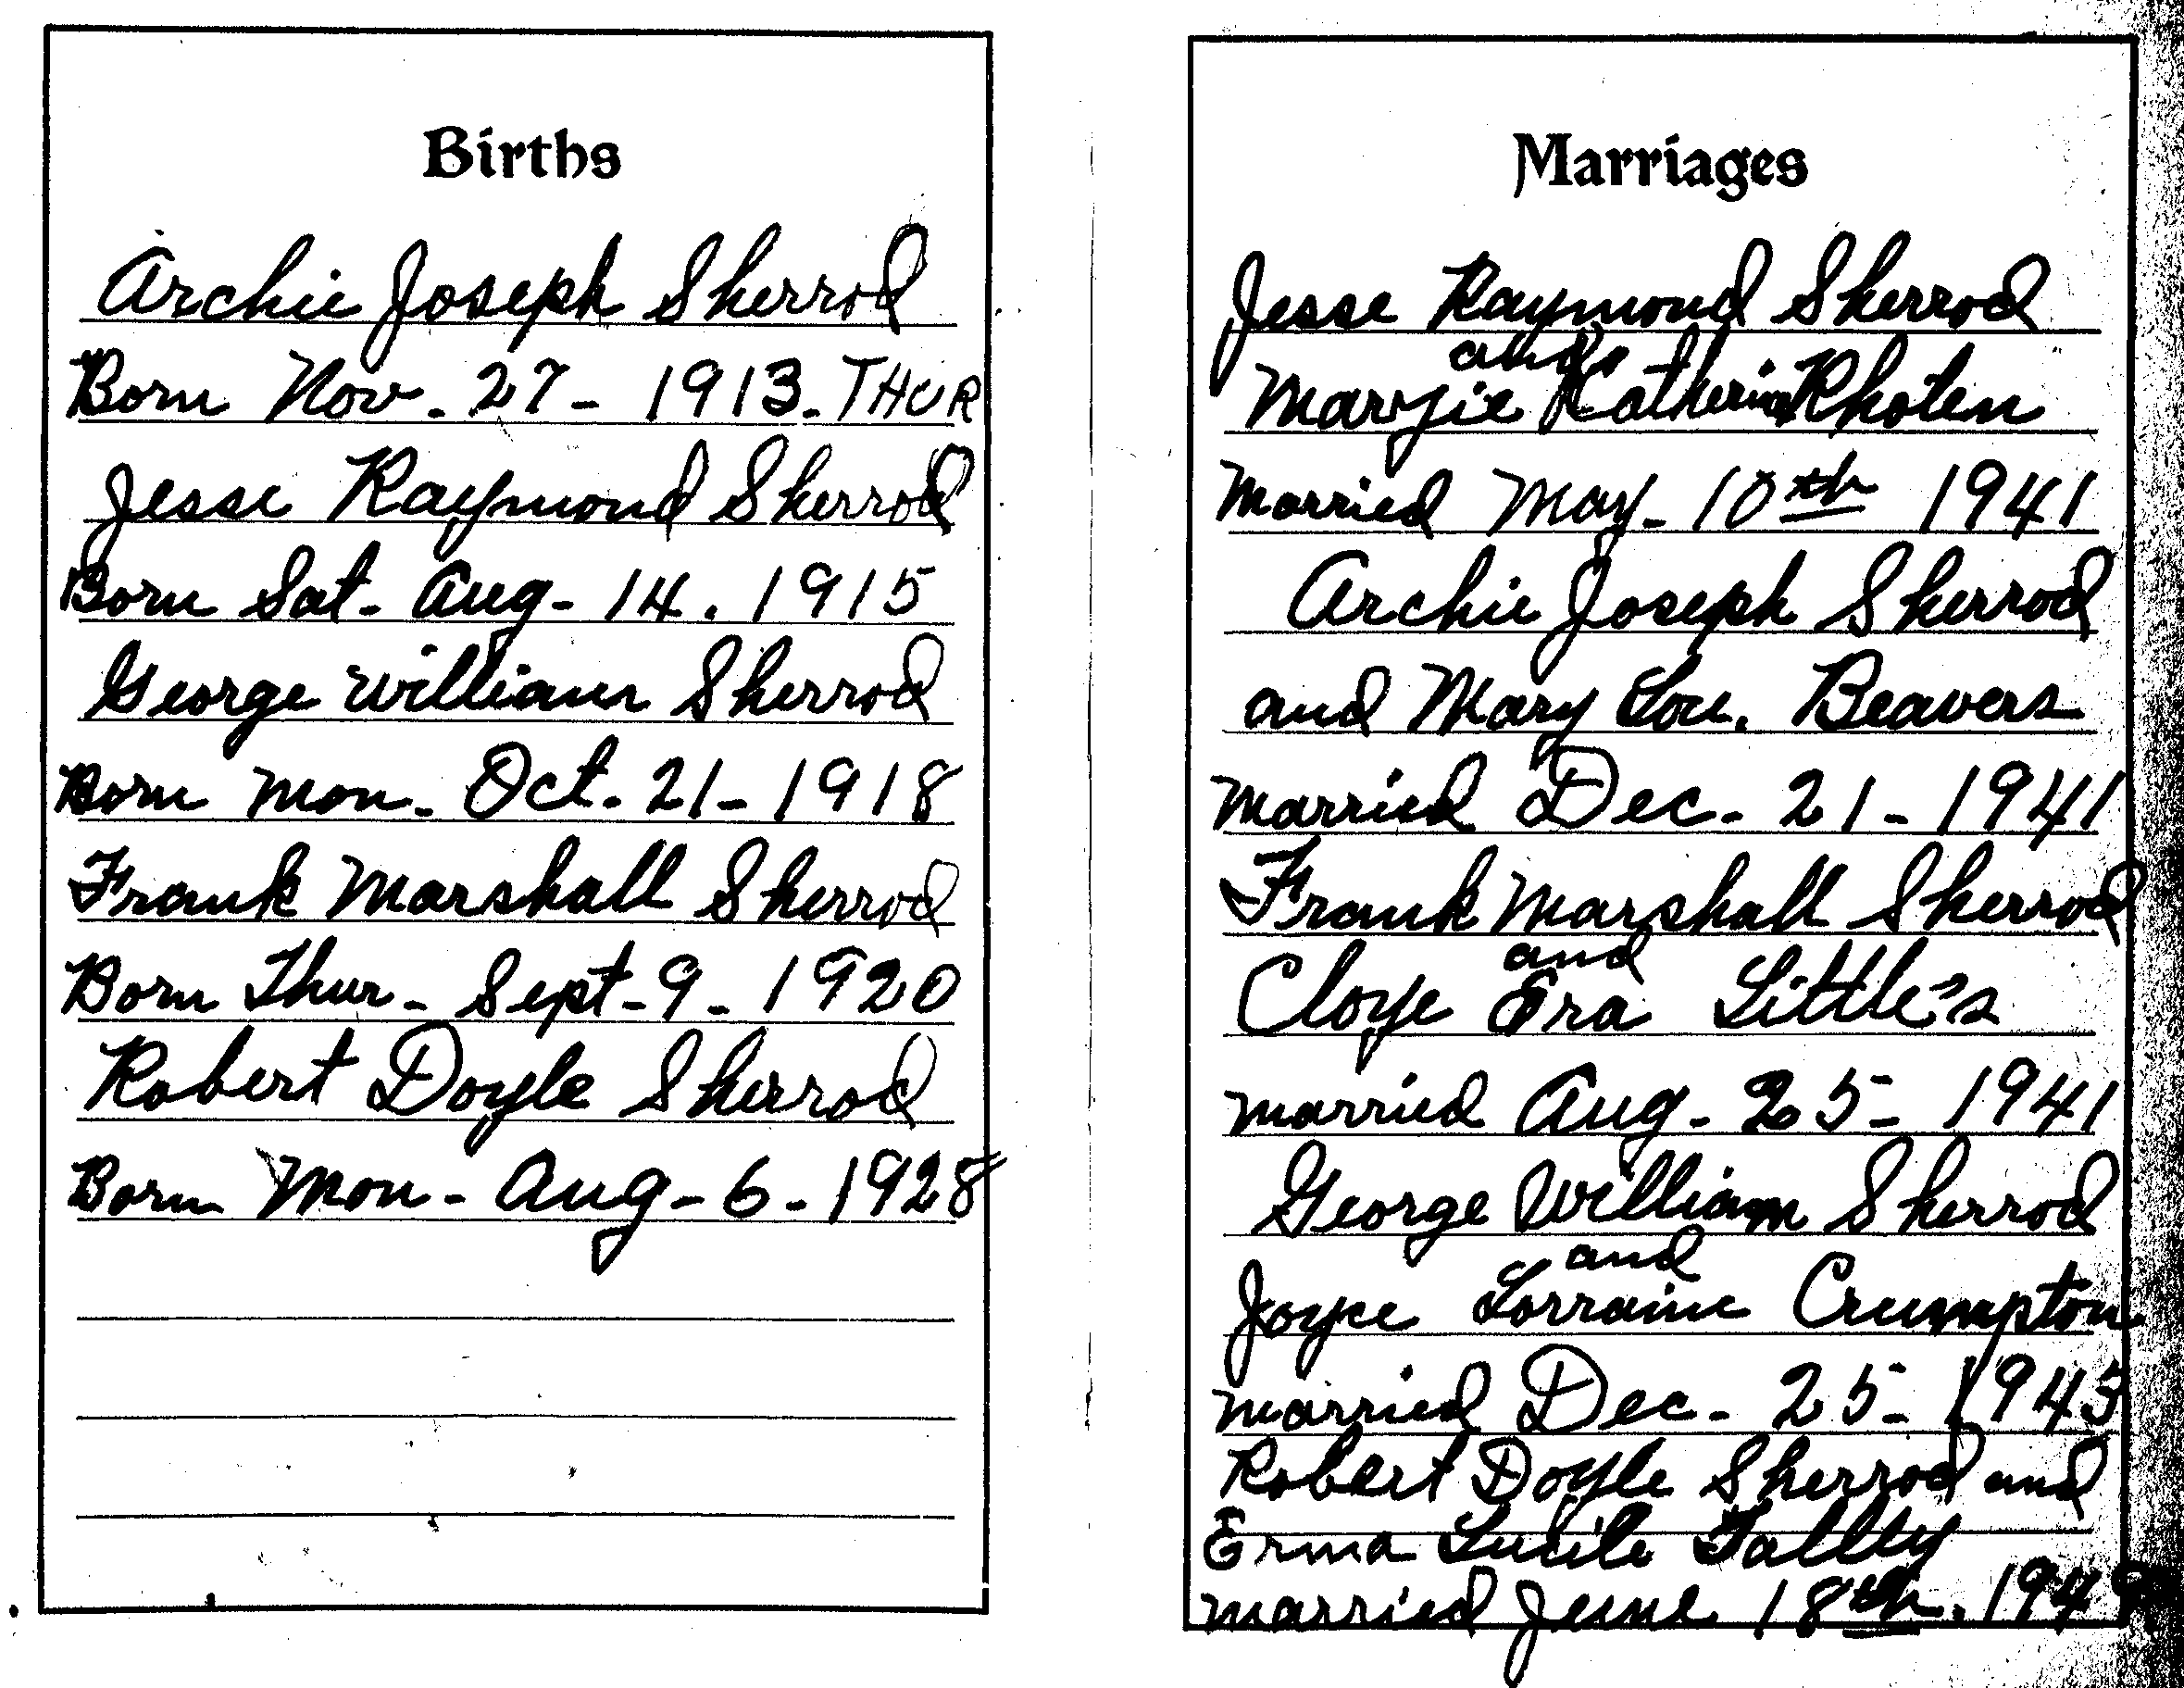 Births
Archie Joseph Sherrod
Born Nov. 27 - 1913. THUR
Jesse Raymond Sherrod
Born Sat - Aug - 14. 1915
George William Sherrod
Born Mon - Oct. 21 - 1918
Frank Marshall Sherrod
Born Thur - Sept - 9 - 1920
Robert Doyle Sherrod
Born Mon - Aug - 6 - 1928
Marriages
Jesse Raymond Sherrod
and
Marjie Katherine Rhoten
Married May - 10th 1941
Archie Joseph Sherrod
and Mary Lou. Beavers
married Dec - 21 - 1941
Frank Marshall Sherrod
and
Cloye Era Little's
married Aug - 25 - 1941
George William Sherrod
and
Joyce Lorraine Crumpton
married Dec - 25 - 1945
Robert Doyle Sherrod and
Erma Lucile
married June 18th.